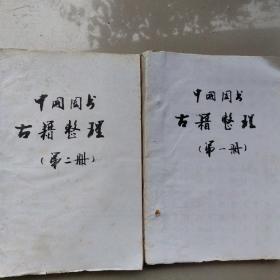 中国图书
古籍整理
(第二册)
中国图书
古籍整理
(第一册)